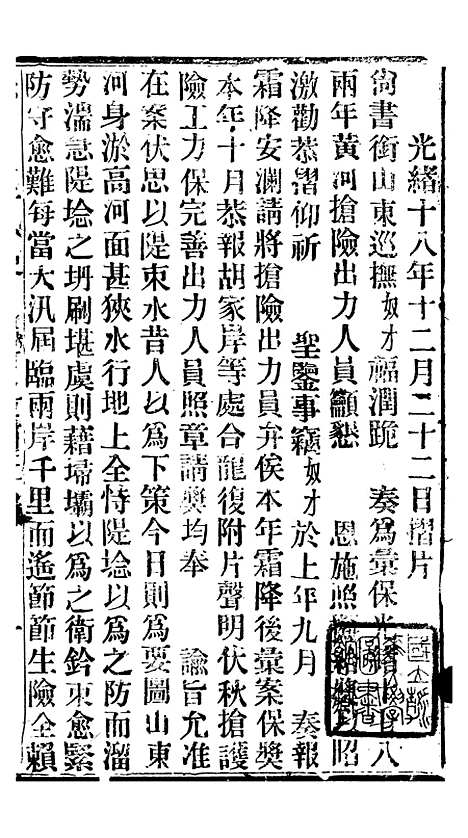 光緒十八年十二月二十二日摺片
尚書銜山東巡撫奴才福潤跪　奏爲彙保光八
兩年黃河搶險出力人員籲懇　恩施照昭
激勸恭摺仰祈　聖鑒事竊奴才於上年九月　奏報
霜降安瀾請將搶險出力員弁俟本年霜降後彙案保獎
本年十月恭報胡家岸等處合龍復附片聲明伏秋搶護
險工力保完善出力人員照章請獎均奉　諭旨允准
在案伏思以隄束水昔人以爲下策今日則爲要圖山東
河身淤高河面甚狹水行地上全恃隄埝以爲之防而溜
勢湍急隄埝之坍刷堪虞則藉埽壩以爲之衛鈐束愈緊
防守愈難每當大汛屆臨兩岸千里而遙節節生險全賴